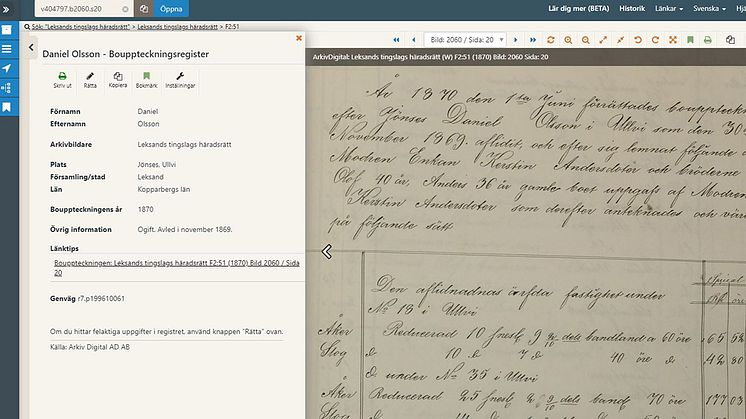 v404797.b2060.s20
Öppna
Lär dig mer (BETA) Historik Länkar Svenska Hjä
Sök: "Leksands tingslags häradsrätt" > Leksands tingslags häradsrätt > F2:51
Daniel Olsson - Bouppteckningsregister
Skriv ut Rätta Kopiera Bokmärk Inställningar
Förnamn Daniel
Efternamn Olsson
Arkivbildare Leksands tingslags häradsrätt
Plats Jönses, Ullvi
Församling/stad Leksand
Län Kopparbergs län
Bouppteckningens år 1870
Övrig information Ogift. Avled i november 1869.
Länktips
Bouppteckningen: Leksands tingslags häradsrätt F2:51 (1870) Bild 2060 / Sida
20
Genväg r7.p199610061
Om du hittar felaktiga uppgifter i registret, använd knappen "Rätta" ovan.
Källa: Arkiv Digital AD AB
Bild: 2060 / Sida: 20
ArkivDigital: Leksands tingslags häradsrätt (W) F2:51 (1870) Bild: 2060 Sida: 20
År 1870 den 1sta Juni förrättades bouppteckn
efter Jönses Daniel Olsson i Ullvi som den 30
November 1869 aflidit, och efter sig lemnat följande
Modren Enkan Kerstin Andersdoter och bröderne
Olof 40 år, Anders 36 år gamle boet uppgafs af Modren
Kerstin Andersdoter som derefter antecknades och vär
på följande sätt
Den aflidnadnas ärfda fastighet under
No 13 i Ullvi
Åker Reducerad 10 snesl 9 dels bandland a 60 öre 65 52
Slog d 10 d 7 d 40 öre d 42 80
d under No 35 i Ullvi
Åker Reducerad 25 snesl dels band 70 öre 177 03